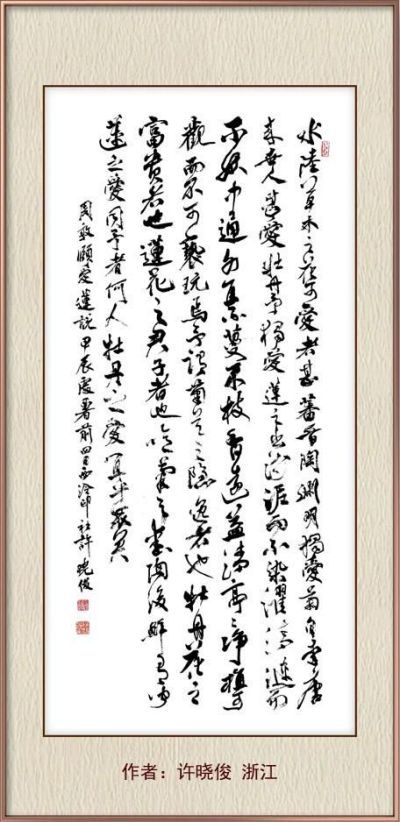 水陸草木之花可愛者甚蕃晉陶淵明獨愛菊自李唐
来世人甚愛牡丹予獨愛蓮之出淤泥而不染濯清漣而
不妖中通外直不蔓不枝香遠益清亭亭淨植可
觀而不可褻玩焉予謂菊花之隱逸者也牡丹花之
富貴者也蓮花之君子者也噫菊之愛陶後鮮有聞
蓮之愛同予者何人牡丹之愛宜乎衆矣
周敦頤愛蓮説甲辰處暑前四日西泠印社許曉俊
作者：许晓俊 浙江